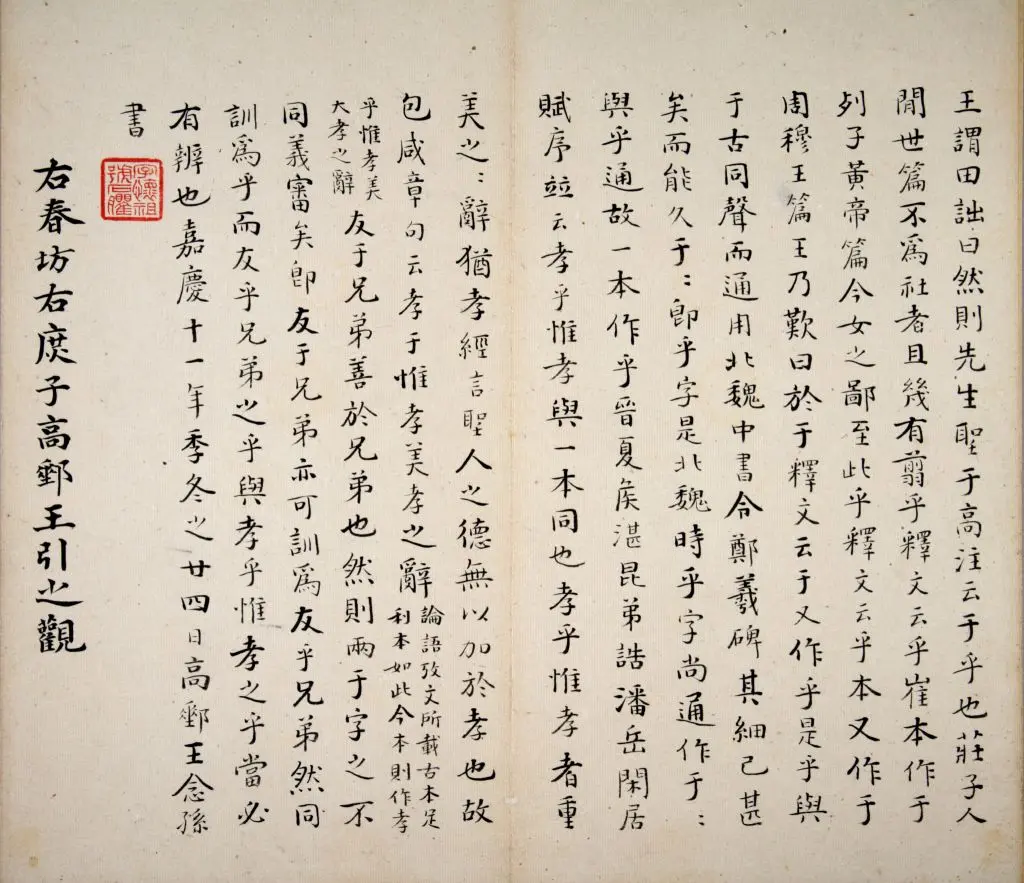 王謂田詘曰然則先生聖于高注云于乎也莊子人
閒世篇不爲社者且幾有翦乎釋文云乎崔本作于
列子黃帝篇今女之鄙至此乎釋文云乎本又作于
周穆王篇王乃歎曰於于釋文云于又作乎是乎與
于古同聲而通用北魏中書令鄭羲碑其細已甚
矣而能久于：卽乎字是北魏時乎字尚通作于：
與乎通故一本作乎晉夏侯湛昆弟誥潘岳閑居
賦序並云孝乎惟孝與一本同也孝乎惟孝者重
美之：辭猶孝經言聖人之德無以加於孝也故
包咸章句云孝于惟孝美孝之辭論語攷文所載古本足利本如此今本則作孝
乎惟孝美大孝之辭友于兄弟善於兄弟也然則兩于字之不
同義審矣卽友于兄弟亦可訓爲友乎兄弟然同
訓爲乎而友乎兄弟之乎與孝乎惟孝之乎當必
有辨也嘉慶十一年季冬之廿四日高郵王念孫
書
字懷祖號石臞
右春坊右庶子高郵王引之觀